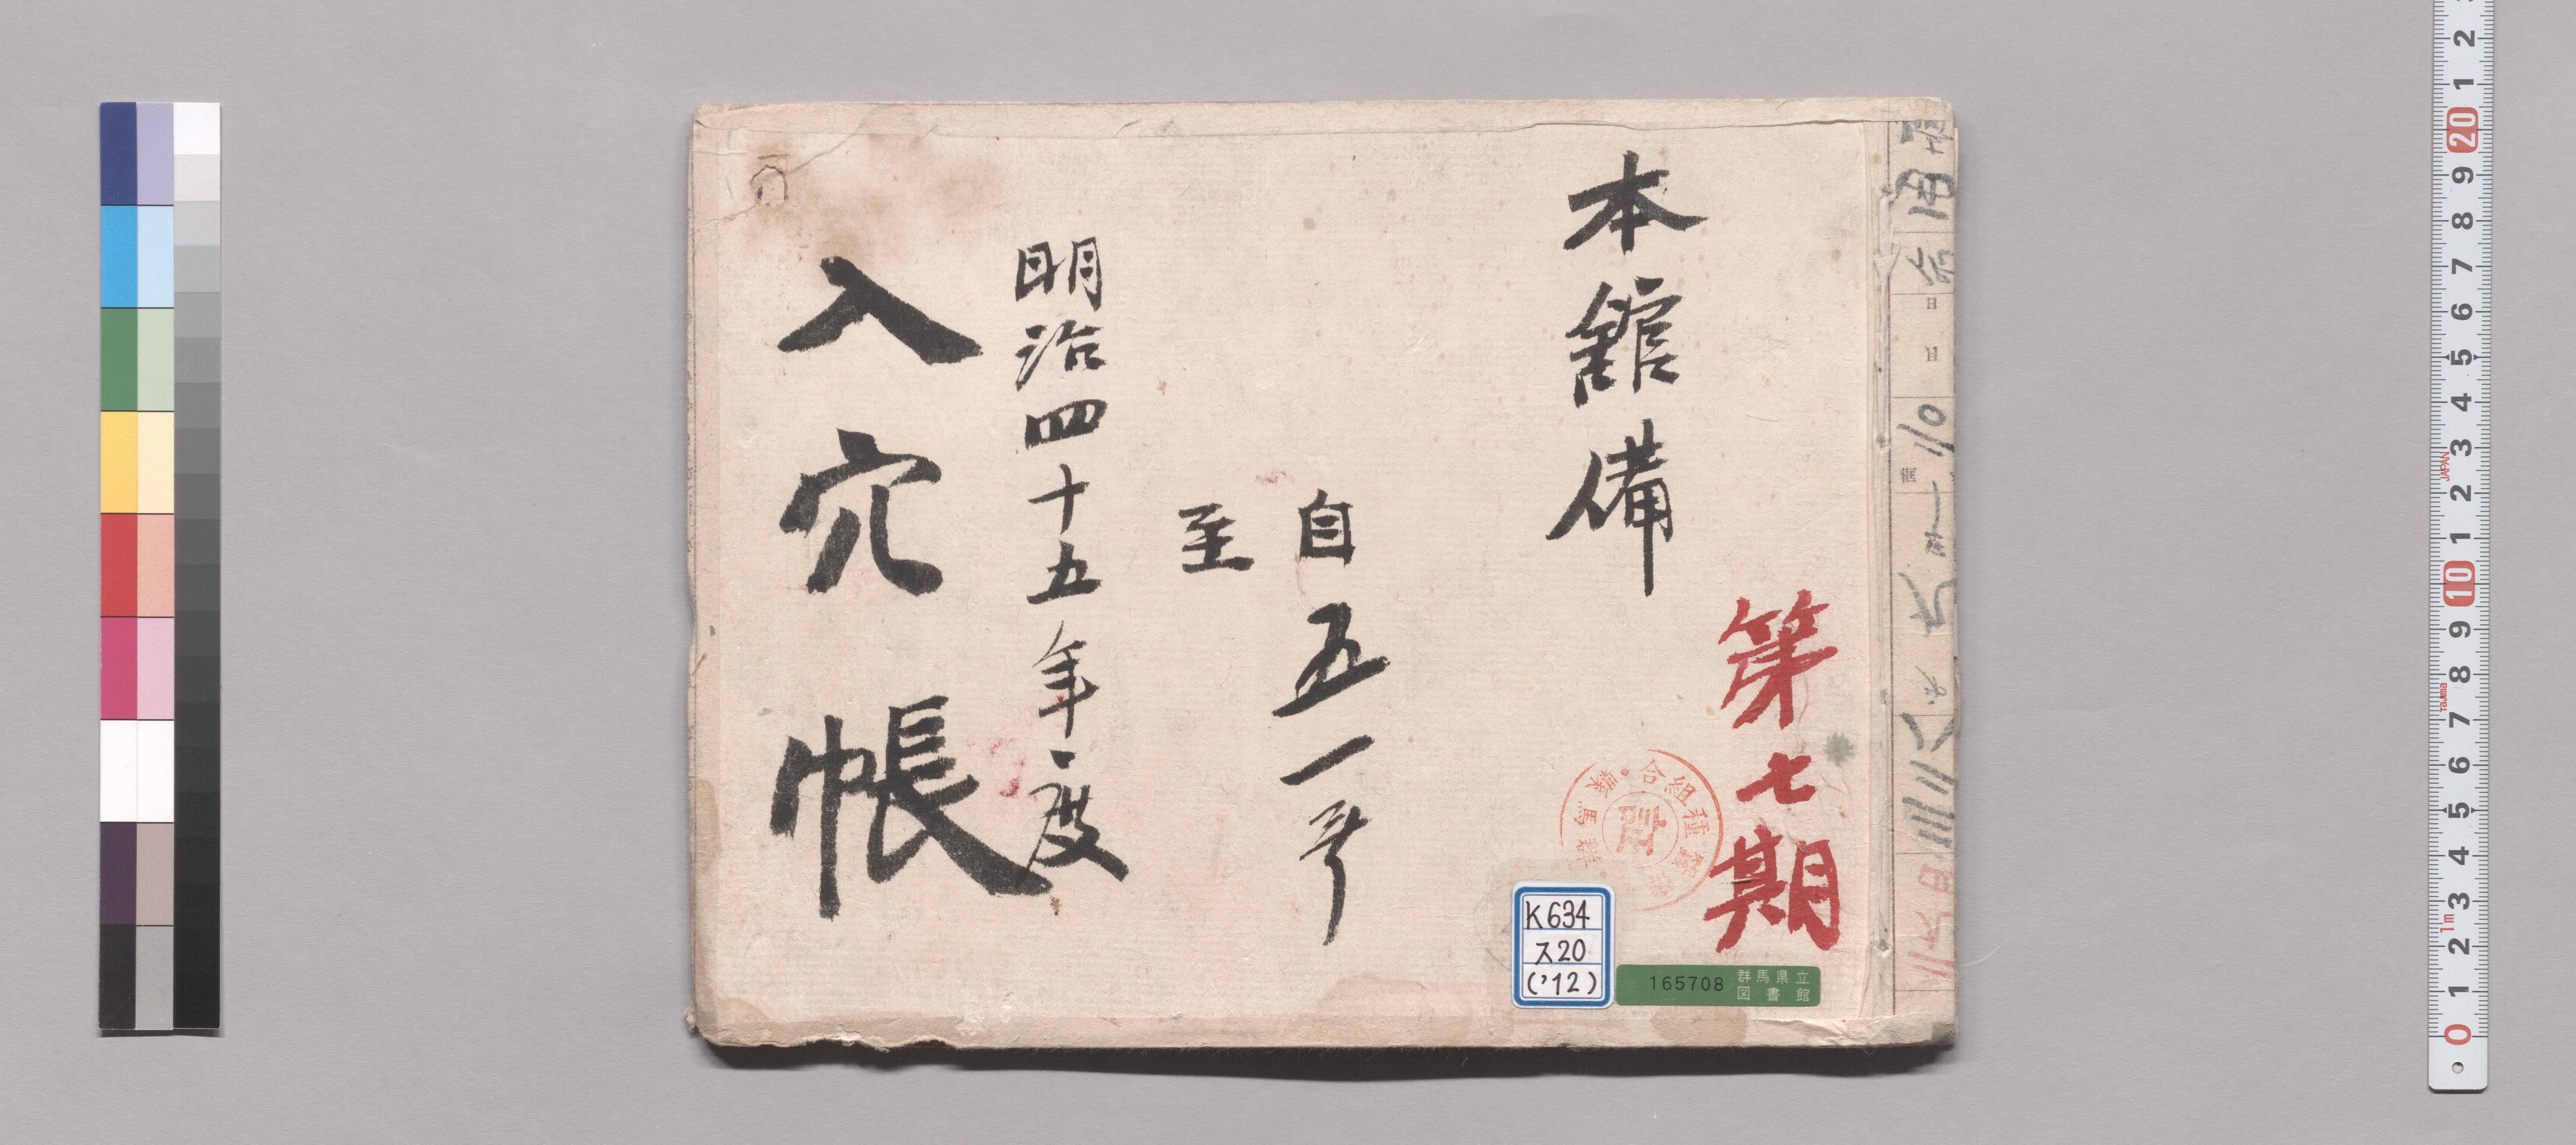 第七期
本館備
自五一号
至
明治四十五年度
入穴帳
群馬縣
蚕種組合
K634
ス20
('12)
165708
群馬県立
図書館